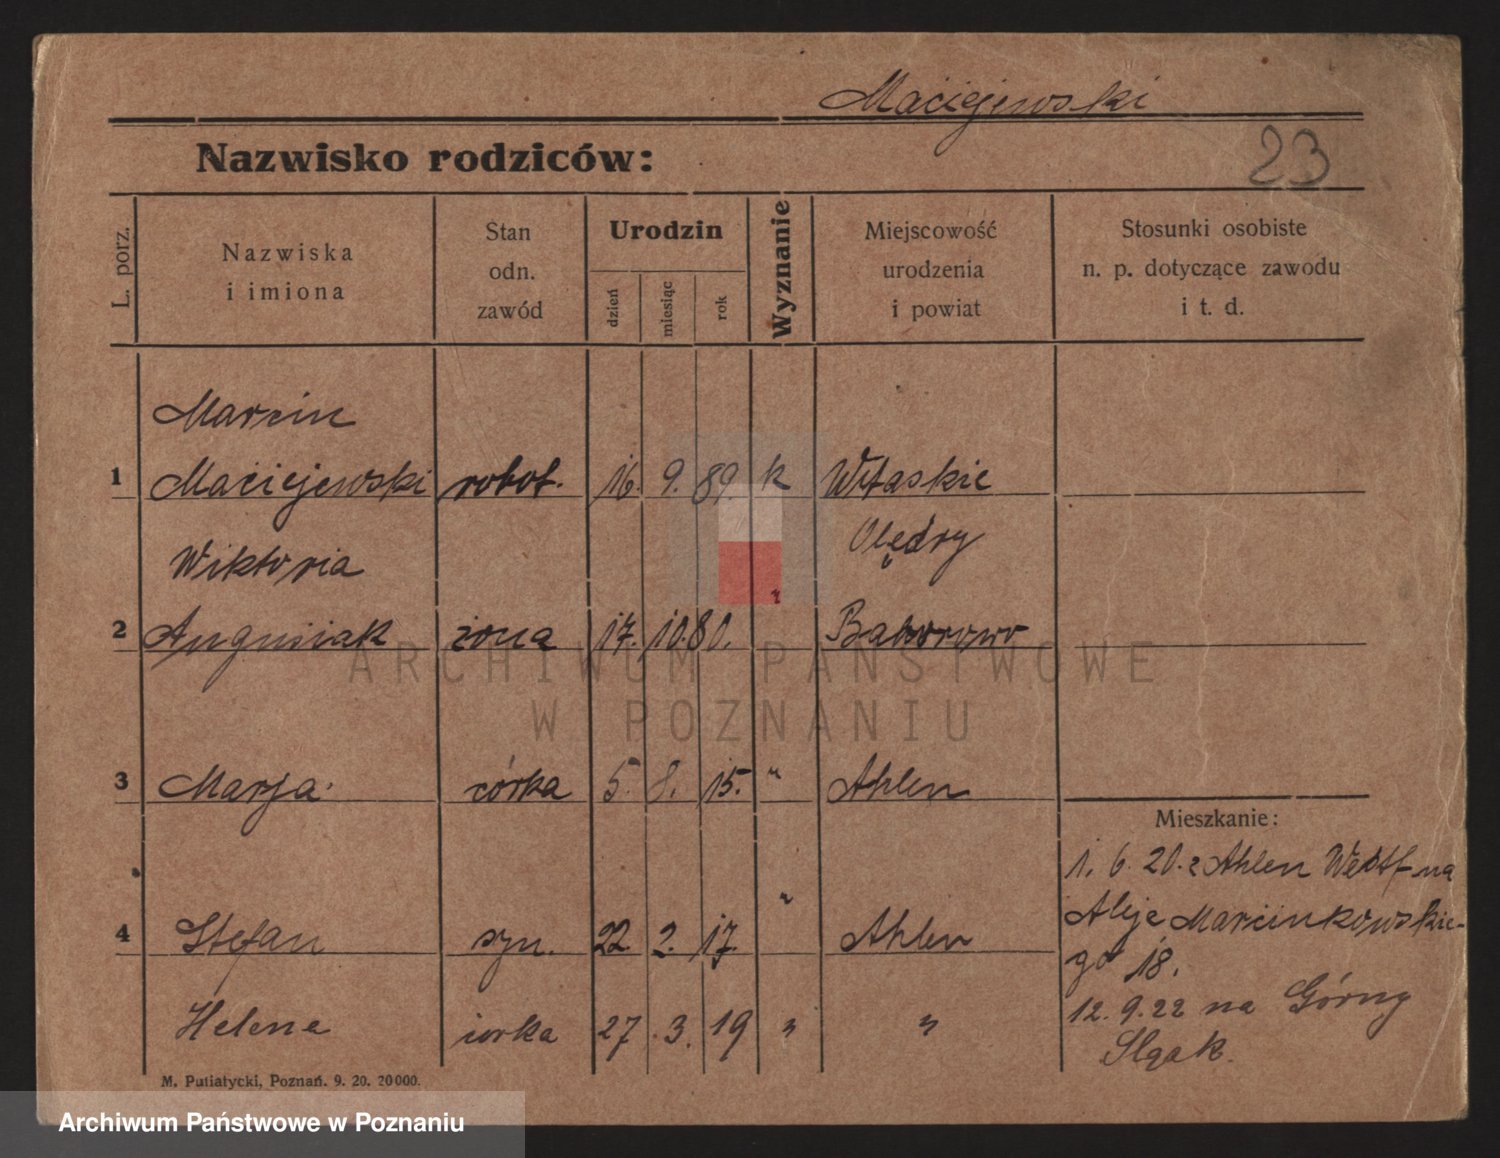 Maciejewski
Nazwisko rodziców:
23
L. porz.
Nazwiska
i imiona
Stan
odn.
zawód
Urodzin
dzień
miesiąc
rok
Wyznanie
Miejscowość
urodzenia
i powiat
Stosunki osobiste
n. p. dotyczące zawodu
i t. d.
Marcin
1 Maciejewski robot. 16. 9. 89. k Witaskie
Olędry
Wiktoria
2 żona 17. 10. 80. "
3 Marja. córka 5. 8. 15. " Ahlen
4 Stefan syn. 22. 2. 17. " Ahlen
Helena córka 27 . 3. 19 " "
Mieszkanie:
1. 6. 20. z Ahlen Westf na
Aleje Marcinkowskie-
go 18.
12. 9. 22 na Górny
Śląsk.
M. Putiatycki, Poznań. 9. 20. 20000.
ARCHIWUM PAŃSTWOWE
W POZNANIU
Archiwum Państwowe w Poznaniu